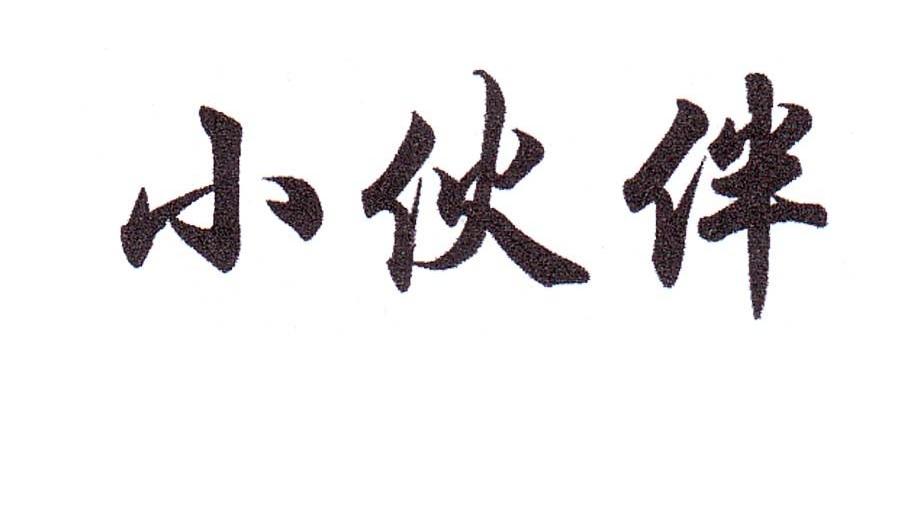 小伙伴